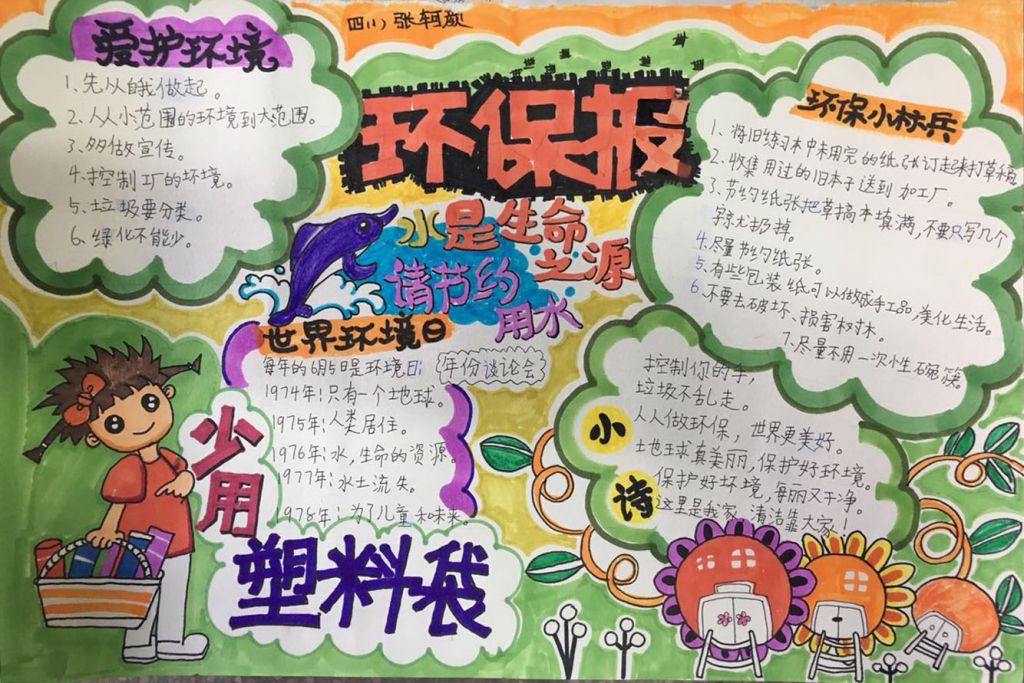 四(1)张轲颜
爱护环境
1、先从自我做起。
2、从小范围的环境到大范围。
3、多做宣传。
4、控制工厂的环境。
5、垃圾要分类。
6、绿化不能少。
环保报
水是生命
之源
请节约
用水
环保小标兵
1、将旧练习本中未用完的纸张订起来打草稿
2、收集用过的旧本子送到加工厂。
3、节约纸张把草搞本填满,不要只写几个
字就扔掉。
4、尽量节约纸张。
5、有些包装纸可以做成手工品,美化生活。
6、不要去破坏、损害树木。
7、尽量不用一次性碗筷。
世界环境日
每年的6月5日是环境日:
年份谈论会
1974年:只有一个地球。
1975年:人类居住。
1976年:水,生命的资源。
1977年:水土流失。
1978年:为了儿童和味来。
少用
塑料袋
小诗
控制你的手,
垃圾不乱走。
人人做环保,世界更美好。
地球真美丽,保护好环境。
保护好环境,每丽又干净。
这里是我家,清洁靠大家!